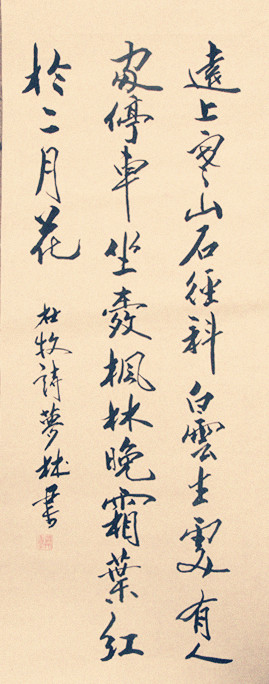 遠上寒山石徑斜白雲生處有人
家停車坐愛楓林晚霜葉紅
於二月花
杜牧詩夢林書